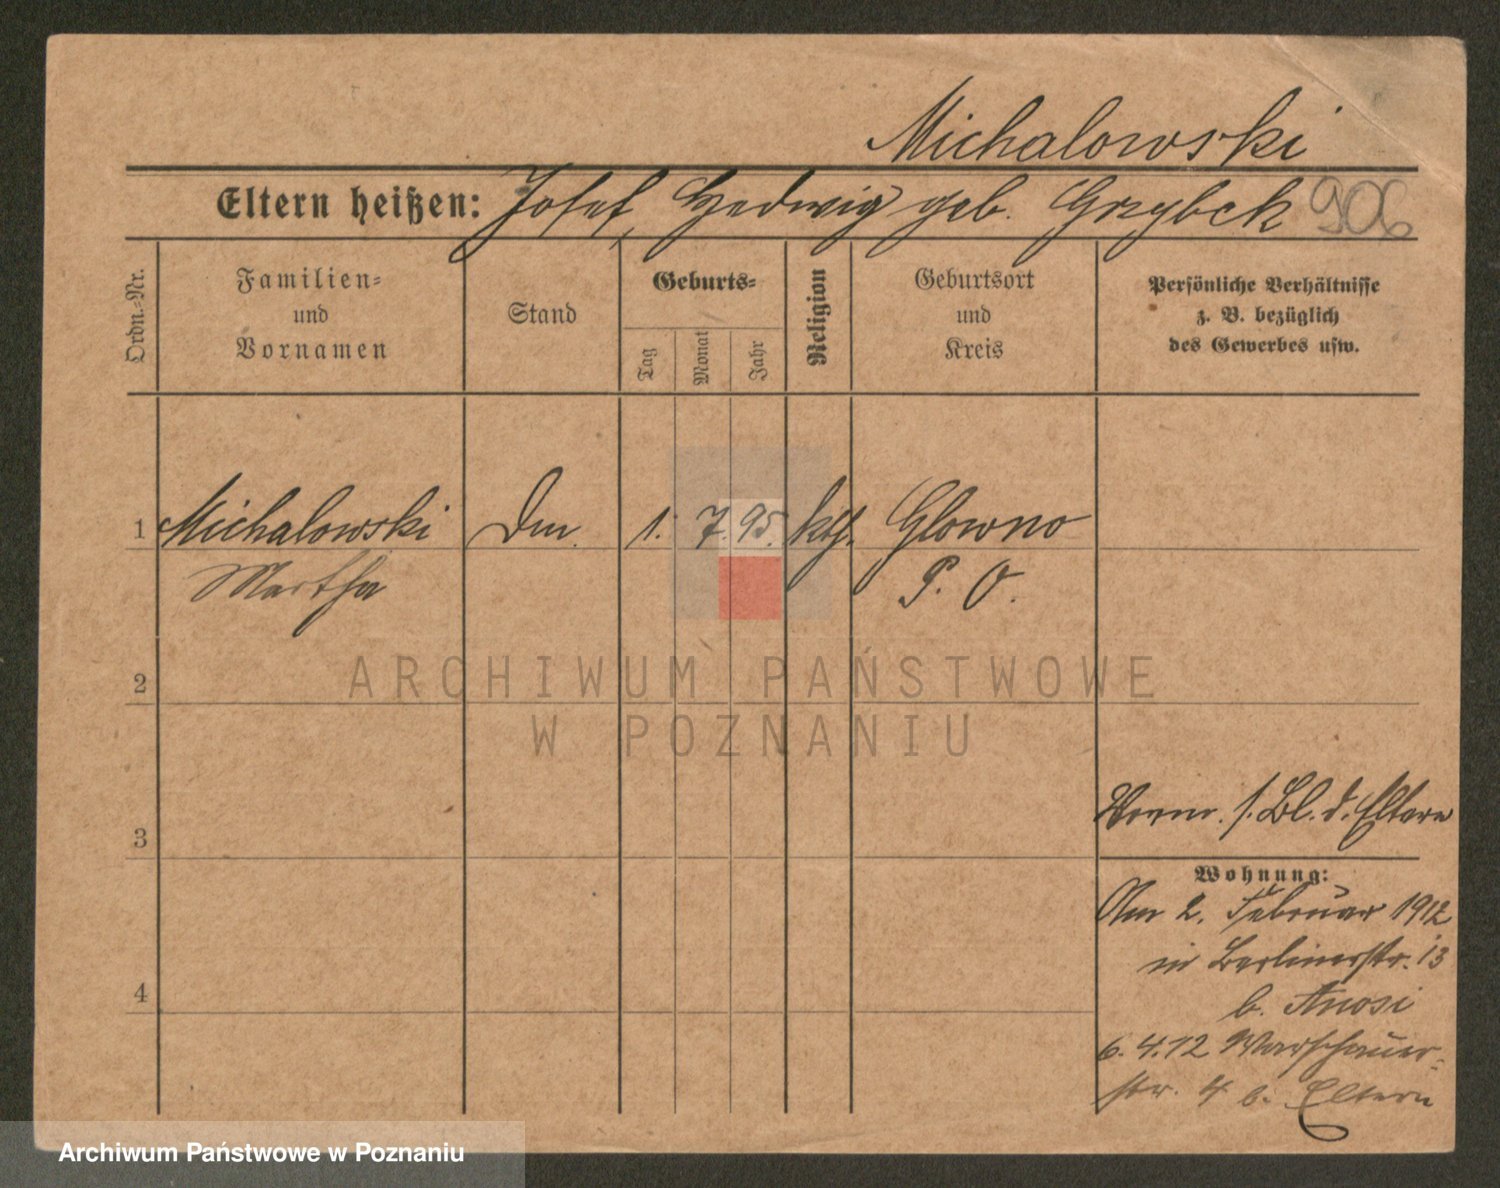 Michalowski
Eltern heißen: Josef, Hedwig geb. Grzybek 906
Ordn.-Nr.
Familien-
und
Vornamen
Stand
Geburts-
Tag
Monat
Jahr
Religion
Geburtsort
und
Kreis
Persönliche Verhältnisse
z. B. bezüglich
des Gewerbes usw.
1 Michalowski
Martha
1. 7. 95. kth. Glowno
P. O.
ARCHIWUM PAŃSTWOWE
W POZNANIU
2
3
4
Vorm. s. Bl. d. Eltern
Wohnung:
Am 2. Februar 1912
in Berlinerstr. 13
b.
6.4.12 Warschauer-
str. 4 b. Eltern
Archiwum Państwowe w Poznaniu